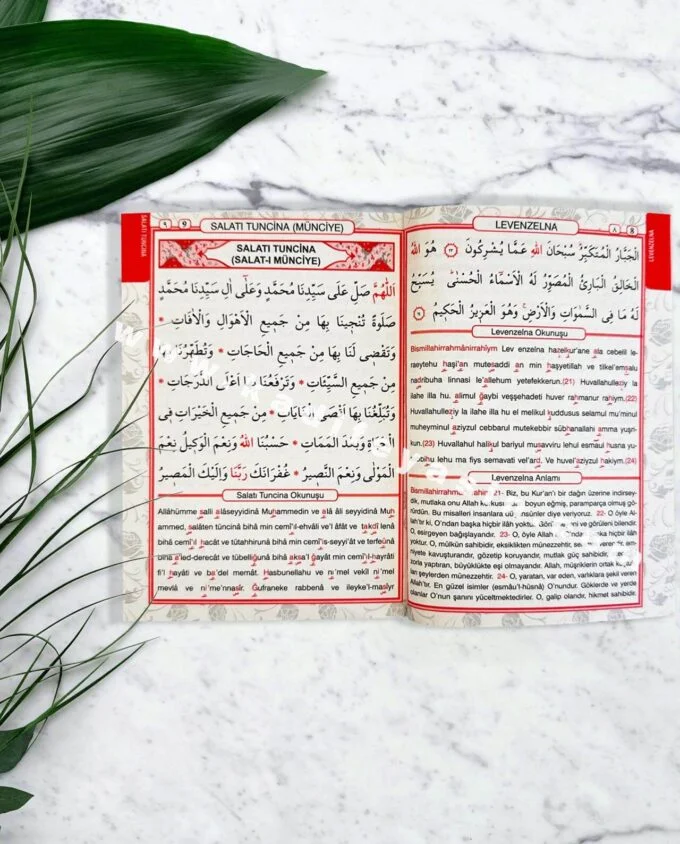 LEVENZELNA
٨ 8
LEVENZELNA
الْجَبَّارُ الْمُتَكَبِّرُ سُبْحَانَ اللهِ عَمَّا يُشْرِكُونَ ﴿٢٣﴾ هُوَ اللهُ
الْخَالِقُ الْبَارِئُ الْمُصَوِّرُ لَهُ الْاَسْمَاءُ الْحُسْنٰى يُسَبِّحُ
لَهُ مَا فِى السَّمٰوَاتِ وَالْاَرْضِ وَهُوَ الْعَزِيزُ الْحَكِيمُ
Levenzelna Okunuşu
Bismillahirrahmânirrahîym Lev enzelna hazelkur'ane âla cebelil le-
raeytehu haşi'an mutesaddi an min haşyetillah ve tilkel'emsalu
nadribuha linnasi le'allehum yetefekkerun.(21) Huvallahulleziy la
ilahe illa hu. alimul ğaybi veşşehadeti huver rahmanur rahiym.(22)
Huvallahulleziy la ilahe illa hu el melikul kuddusus selamul mu'minul
muheyminul aziyzul cebbarul mutekebbir sübhanallahi amma yuşri-
kun.(23) Huvallahul halikul bariyul musavviru lehul esmâul husna yu-
bihu lehu ma fiys semavati vel'ard. Ve huvel'azizyul hakiym.(24)
Levenzelna Anlamı
Bismillahirrahmanirrahim 21- Biz, bu Kur'an'ı bir dağın üzerine indirsey-
dik, mutlaka onu Allah boyun eğmiş, paramparça olmuş gö-
rürdün. Bu misalleri insanlara düşünsünler diye veriyoruz. 22- O öyle Al-
lah'tır ki, O'ndan başka hiçbir ilâh yoktur. ve görüleni bilendir.
O, esirgeyen bağışlayandır. 23- O, öyle Allah başka hiçbir ilâh
yoktur. O, mülkün sahibidir, eksiklikten münezzehtir, em-
niyete kavuşturandır, gözetip koruyandır, mutlak güç sahibidir,
zorla yaptıran, büyüklükte eşi olmayandır. Allah, müşriklerin ortak
ları şeylerden münezzehtir. 24- O, yaratan, var eden, varlıklara şekil veren
Allah'tır. En güzel isimler (esmâu'l-hüsnâ) O'nundur. Göklerde ve yerde
olanlar O'nun şanını yüceltmektedirler. O, galip olandır, hikmet sahibidir.
SALATI TUNCİNA
٩ 9
SALATI TUNCİNA (MÜNCİYE)
SALATI TUNCİNA
(SALAT-I MÜNCİYE)
اَللّٰهُمَّ صَلِّ عَلٰى سَيِّدِنَا مُحَمَّدٍ وَعَلٰٓى اٰلِ سَيِّدِنَا مُحَمَّدٍ
صَلٰوةً تُنْجِينَا بِهَا مِنْ جَمِيعِ الْاَهْوَالِ وَالْاٰفَاتِ *
وَتَقْضِى لَنَا بِهَا مِنْ جَمِيعِ الْحَاجَاتِ * وَتُطَهِّرُنَا بِهَا
مِنْ جَمِيعِ السَّيِّئَاتِ * وَتَرْفَعُنَا بِهَا اَعْلَى الدَّرَجَاتِ *
وَتُبَلِّغُنَا بِهَا اَقْصَى الْغَايَاتِ * مِنْ جَمِيعِ الْخَيْرَاتِ فِى
الْحَيَاةِ وَبَعْدَ الْمَمَاتِ * حَسْبُنَا اللهُ وَنِعْمَ الْوَكِيلُ نِعْمَ
الْمَوْلٰى وَنِعْمَ النَّصِيرُ * غُفْرَانَكَ رَبَّنَا وَاِلَيْكَ الْمَصِيرُ
Salatı Tuncina Okunuşu
Allâhümme salli alâseyyidinâ Muhammedin ve alâ âli seyyidinâ Muh
ammed, salâten tüncinâ bihâ min cemî'il-ehvâli ve'l âfât ve takdî lenâ
bihâ cemî'il hacât ve tütahhirunâ bihâ min cemî'is-seyyi'ât ve terfeûnâ
bihâ a'led-derecât ve tübelliğunâ bihâ aksa'l ğayât min cemî'il-hayrâti
fi'l hayâti ve ba'del memât. Hasbunellahu ve ni'mel vekîl ni'mel
mevlâ ve ni'me'nnasîr. Ğufraneke rabbenâ ve ileyke'l-masîyr